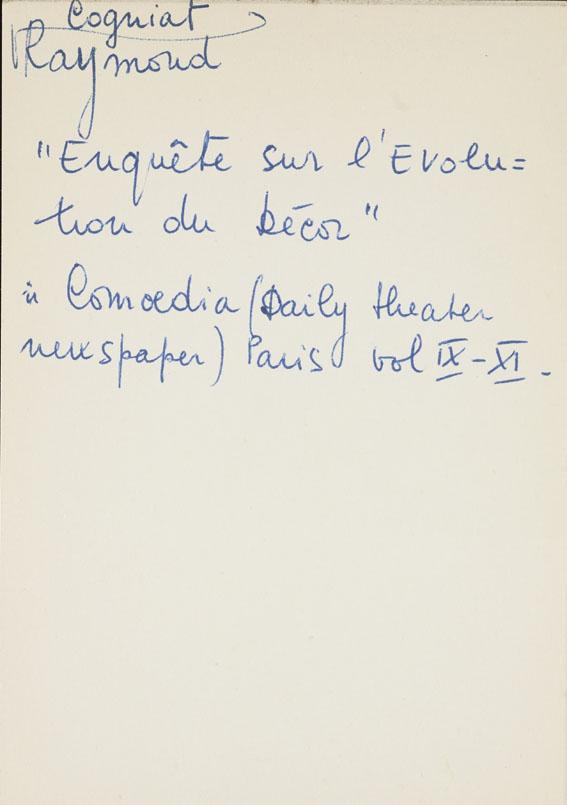 Cogniat
Raymond
"Enquête sur l'Evolu=
tion du Décor"
in Comoedia (Daily theater
newspaper) Paris vol IX-XI.